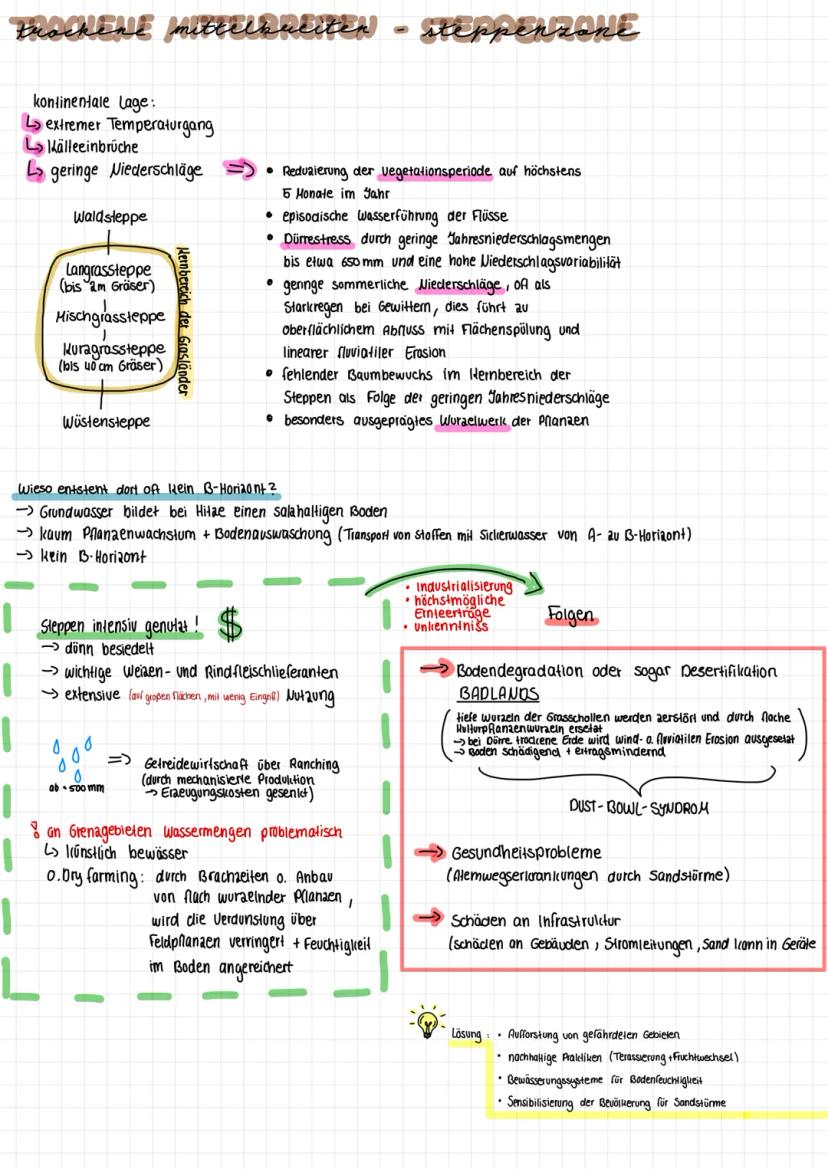 trockene mittelbreiten - steppenzone
kontinentale Lage:
↳ extremer Temperaturgang
↳ Kälteeinbrüche
↳ geringe Niederschläge ⇒
• Reduzierung der Vegetationsperiode auf höchstens
5 Monate im Jahr
• episodische Wasserführung der Flüsse
• Dürrestress durch geringe Jahresniederschlagsmengen
bis etwa 650mm und eine hohe Niederschlagsvariabilität
• geringe sommerliche Niederschläge, oft als
Starkregen bei Gewittern, dies führt zu
oberflächlichem Abfluss mit Flächenspülung und
linearer fluviatiler Erosion
• fehlender Baumbewuchs im Kernbereich der
Steppen als Folge der geringen Jahresniederschläge
• besonders ausgeprägtes Wurzelwerk der Pflanzen
Waldsteppe
Langrassteppe
(bis 2m Gräser)
Mischgrassteppe
Kurzgrassteppe
(bis 40cm Gräser)
Wüstensteppe
Kernbereich der Grasländer
Wieso entstent dort oft kein B-Horizont?
→ Grundwasser bildet bei Hitze einen salzhaltigen Boden
→ kaum Pflanzenwachstum + Bodenauswaschung (Transport von Stoffen mit Sickerwasser von A- zu B-Horizont)
→ kein B-Horizont
Steppen intensiv genutzt! $
→ dünn besiedelt
→ wichtige Weizen- und Rindfleischlieferanten
→ extensive (auf großen Flächen, mit wenig Eingriff) Nutzung
ab ≈ 500mm
⇒ Getreidewirtschaft über Ranching
(durch mechanisierte Produktion
→ Erzeugungskosten gesenkt)
! an Grenzgebieten Wassermengen problematisch
↳ künstlich bewässer
o. Dry farming: durch Brachzeiten o. Anbau
von flach wurzelnder Pflanzen,
wird die Verdunstung über
Feldpflanzen verringert + Feuchtigkeit
im Boden angereichert
• Industrialisierung
• höchstmögliche
Ernteerträge
• unkenntniss
Folgen
→ Bodendegradation oder sogar Desertifikation
BADLANDS
(tiefe Wurzeln der Grasschollen werden zerstört und durch flache
Kulturpflanzenwurzeln ersetzt
→ bei Dürre trockene Erde wird wind- o. fluviatilen Erosion ausgesetzt
→ Boden schädigend + ertragsmindernd)
DUST-BOWL-SYNDROM
→ Gesundheitsprobleme
(Atemwegserkrankungen durch Sandstürme)
→ Schäden an Infrastruktur
(schäden an Gebäuden, Stromleitungen, Sand kann in Geräte
Lösung: • Aufforstung von gefährdeten Gebieten
• nachhaltige Praktiken (Terassierung + Fruchtwechsel)
• Bewässerungssysteme für Bodenfeuchtigkeit
• Sensibilisierung der Bevölkerung für Sandstürme